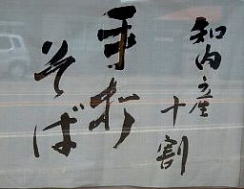 知内産
十割
手打
そば